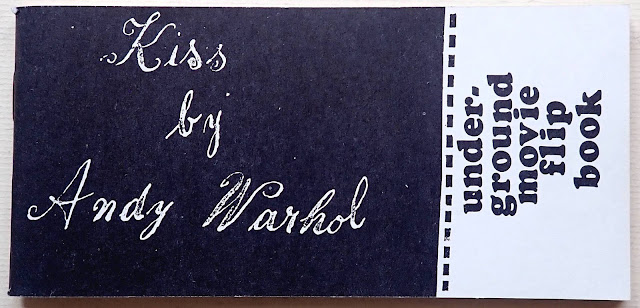 Kiss
by
Andy Warhol
under-
ground
movie
flip
book